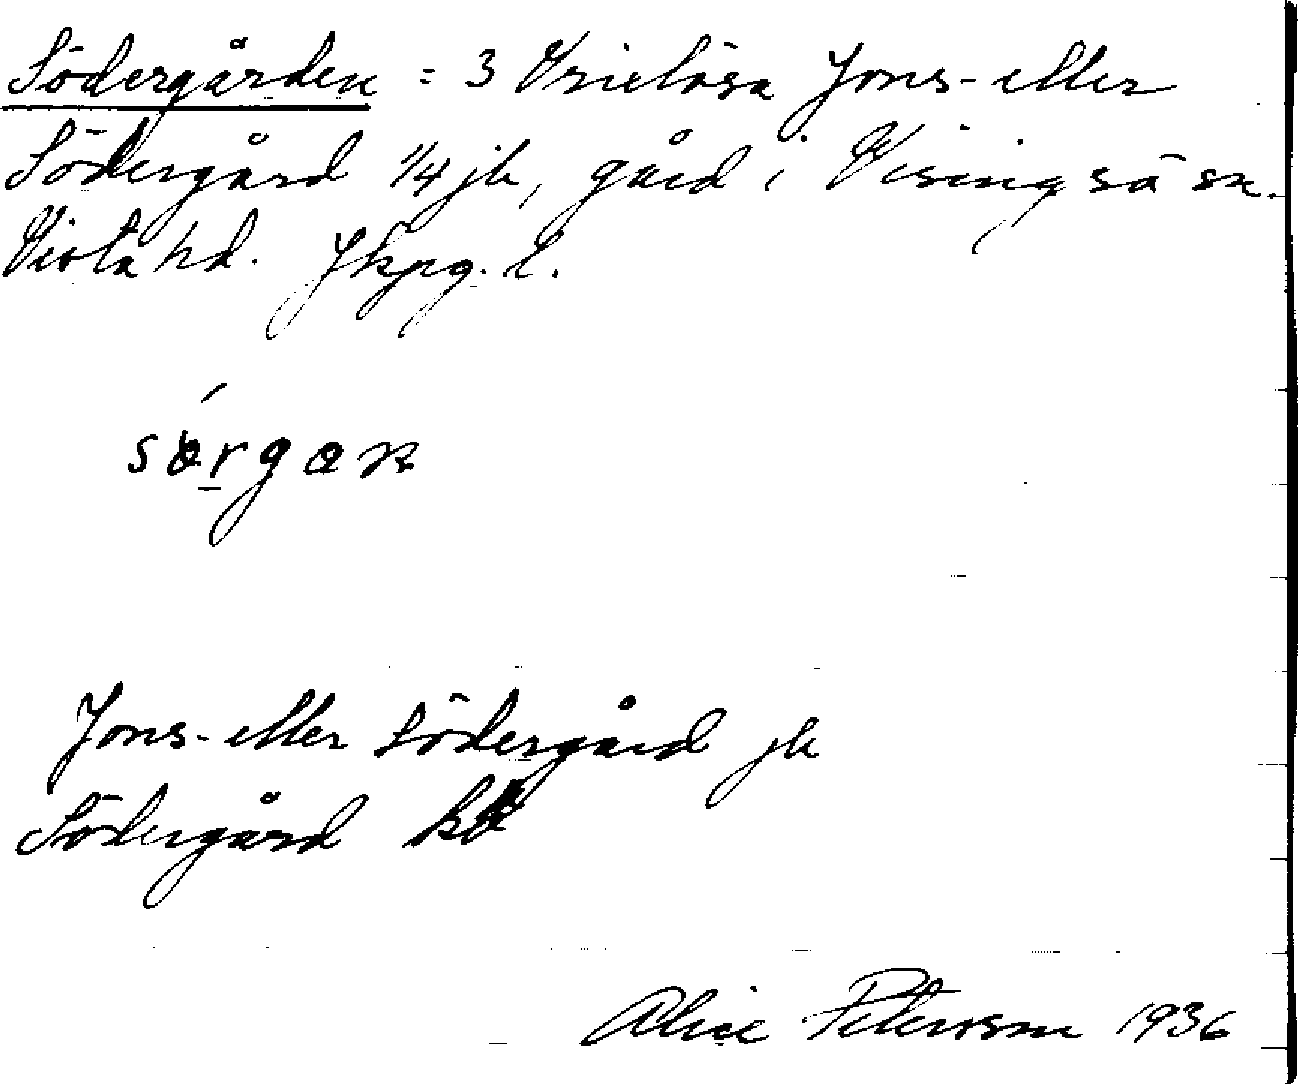 Södergården = 3 Vrielösa Jons- eller
Södergård 1/4 jb, gård i Visingsö sn.
Vista hd. Jkpg. l.
sørgan
Jons- eller Södergård jb
Södergård
Alice Petersson 1936